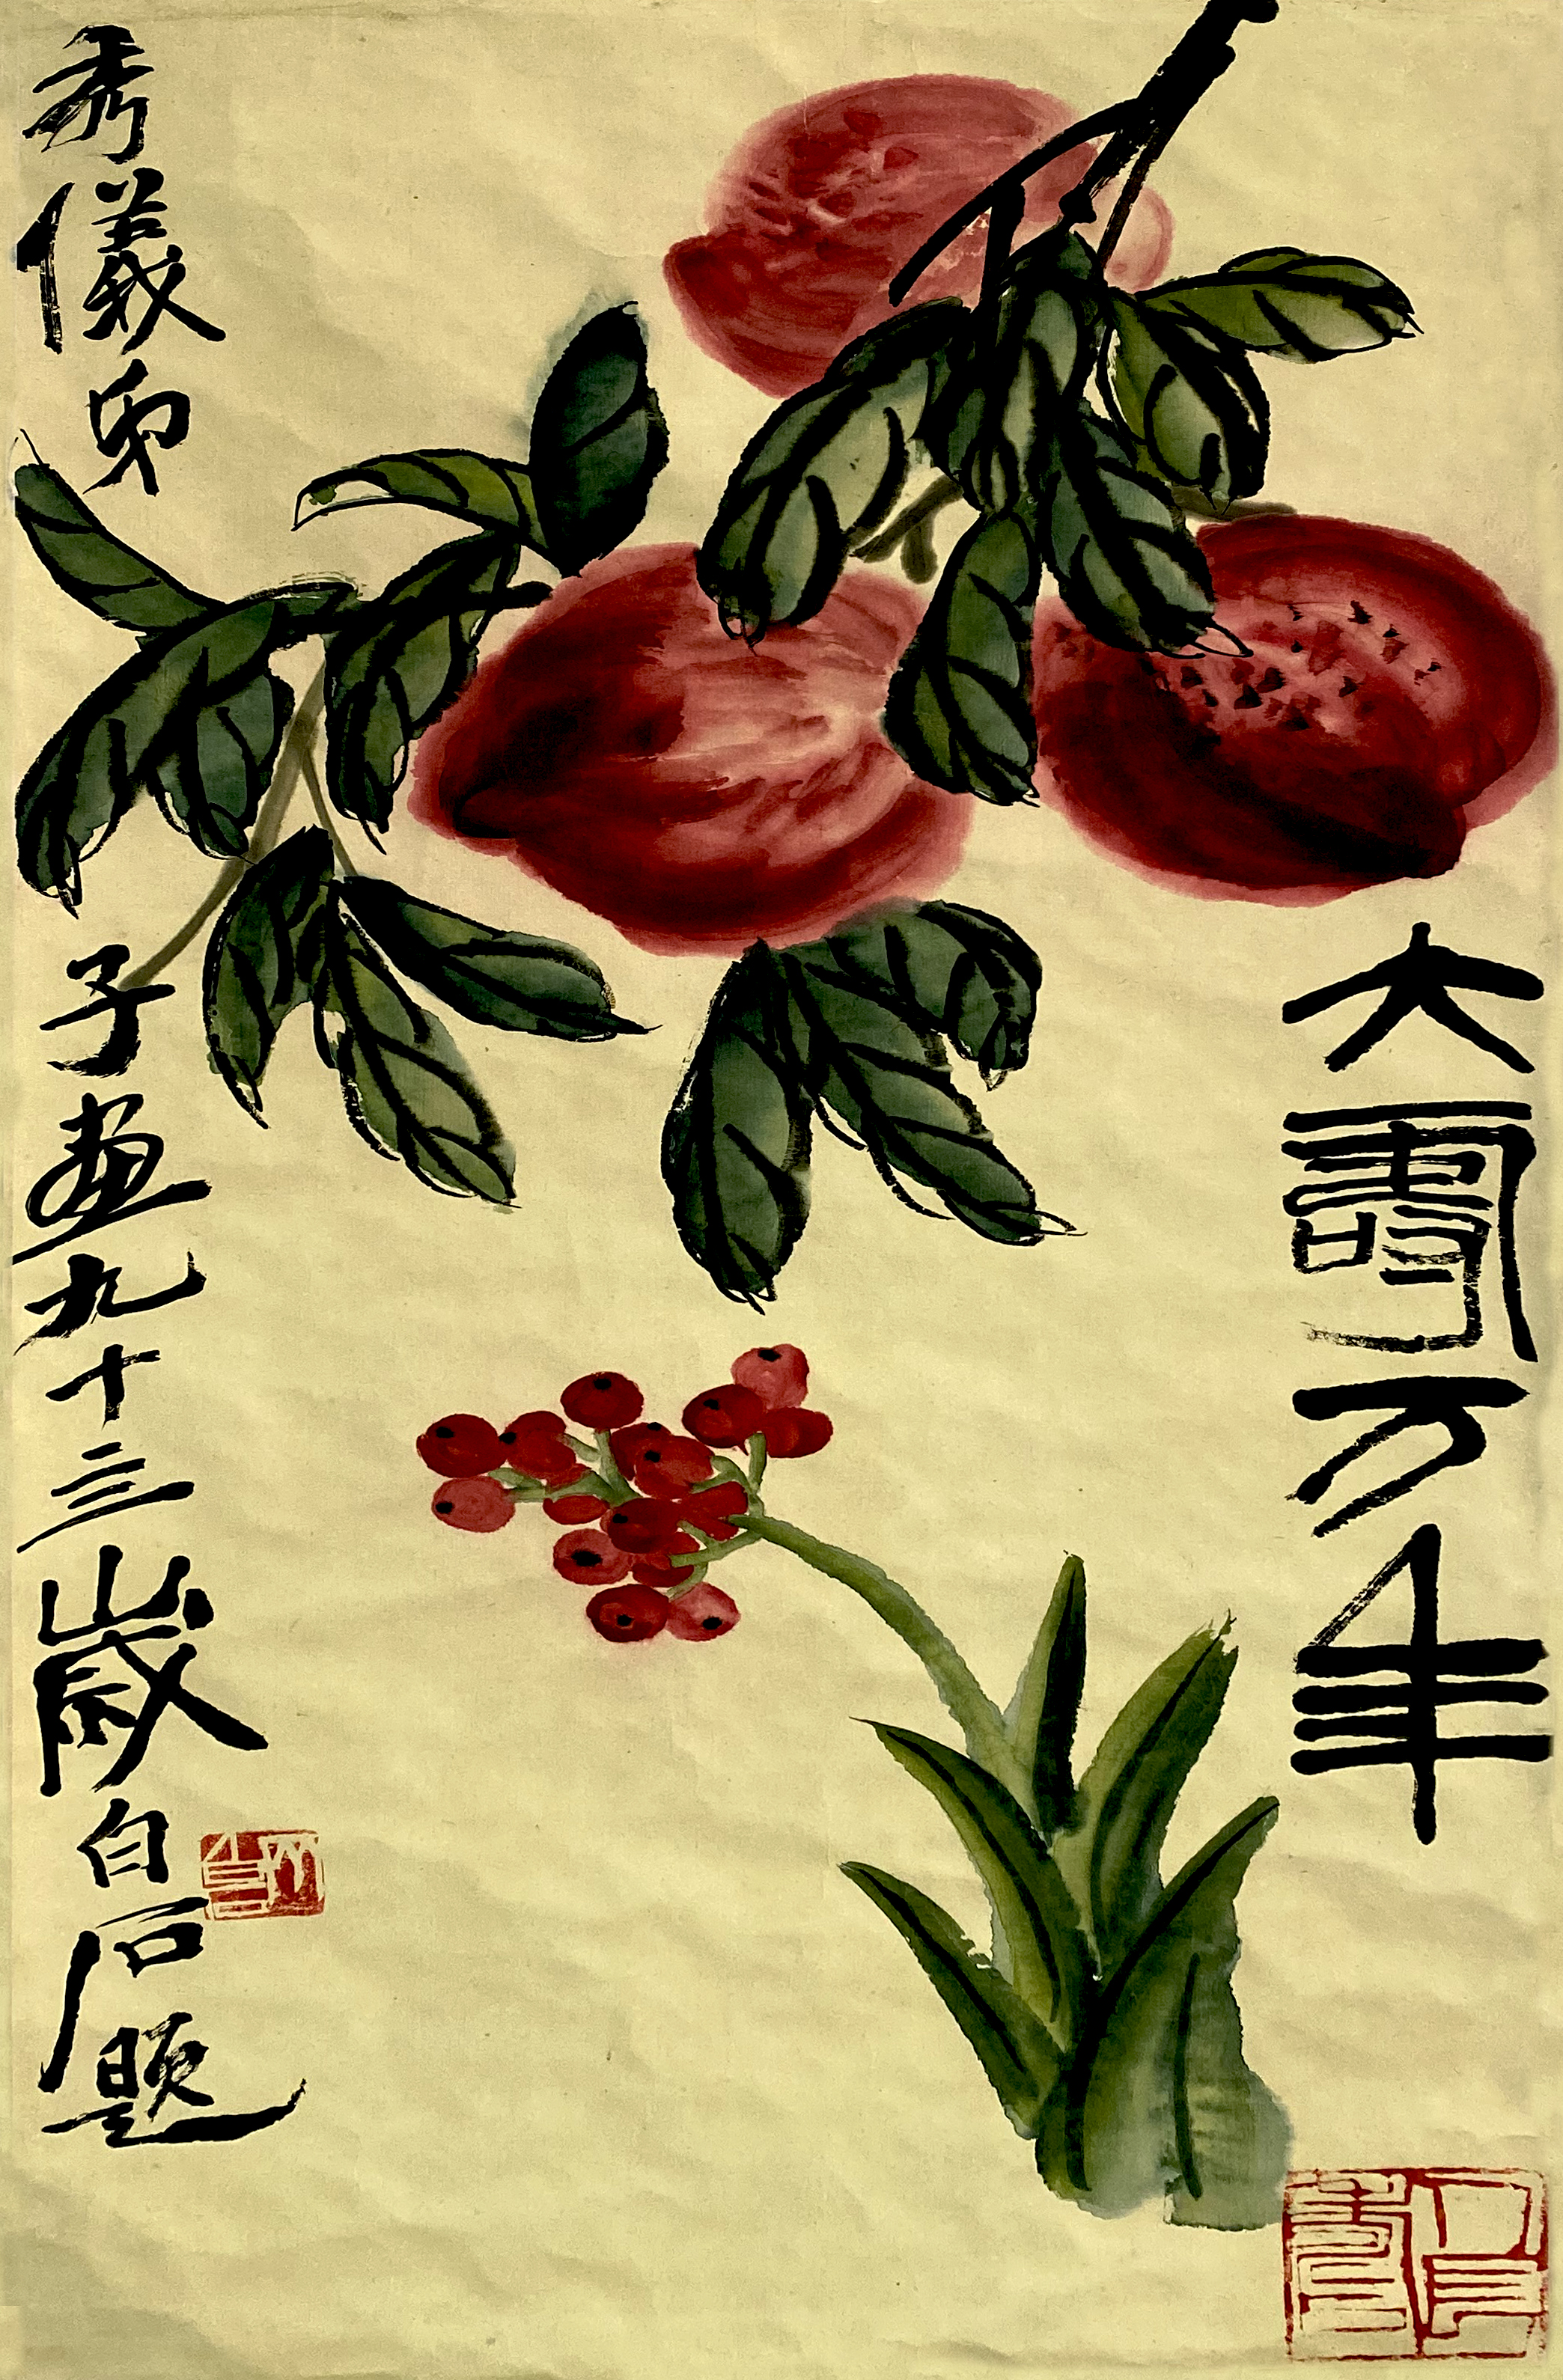 大壽万年
秀儀弟子畫九十三歲白石題